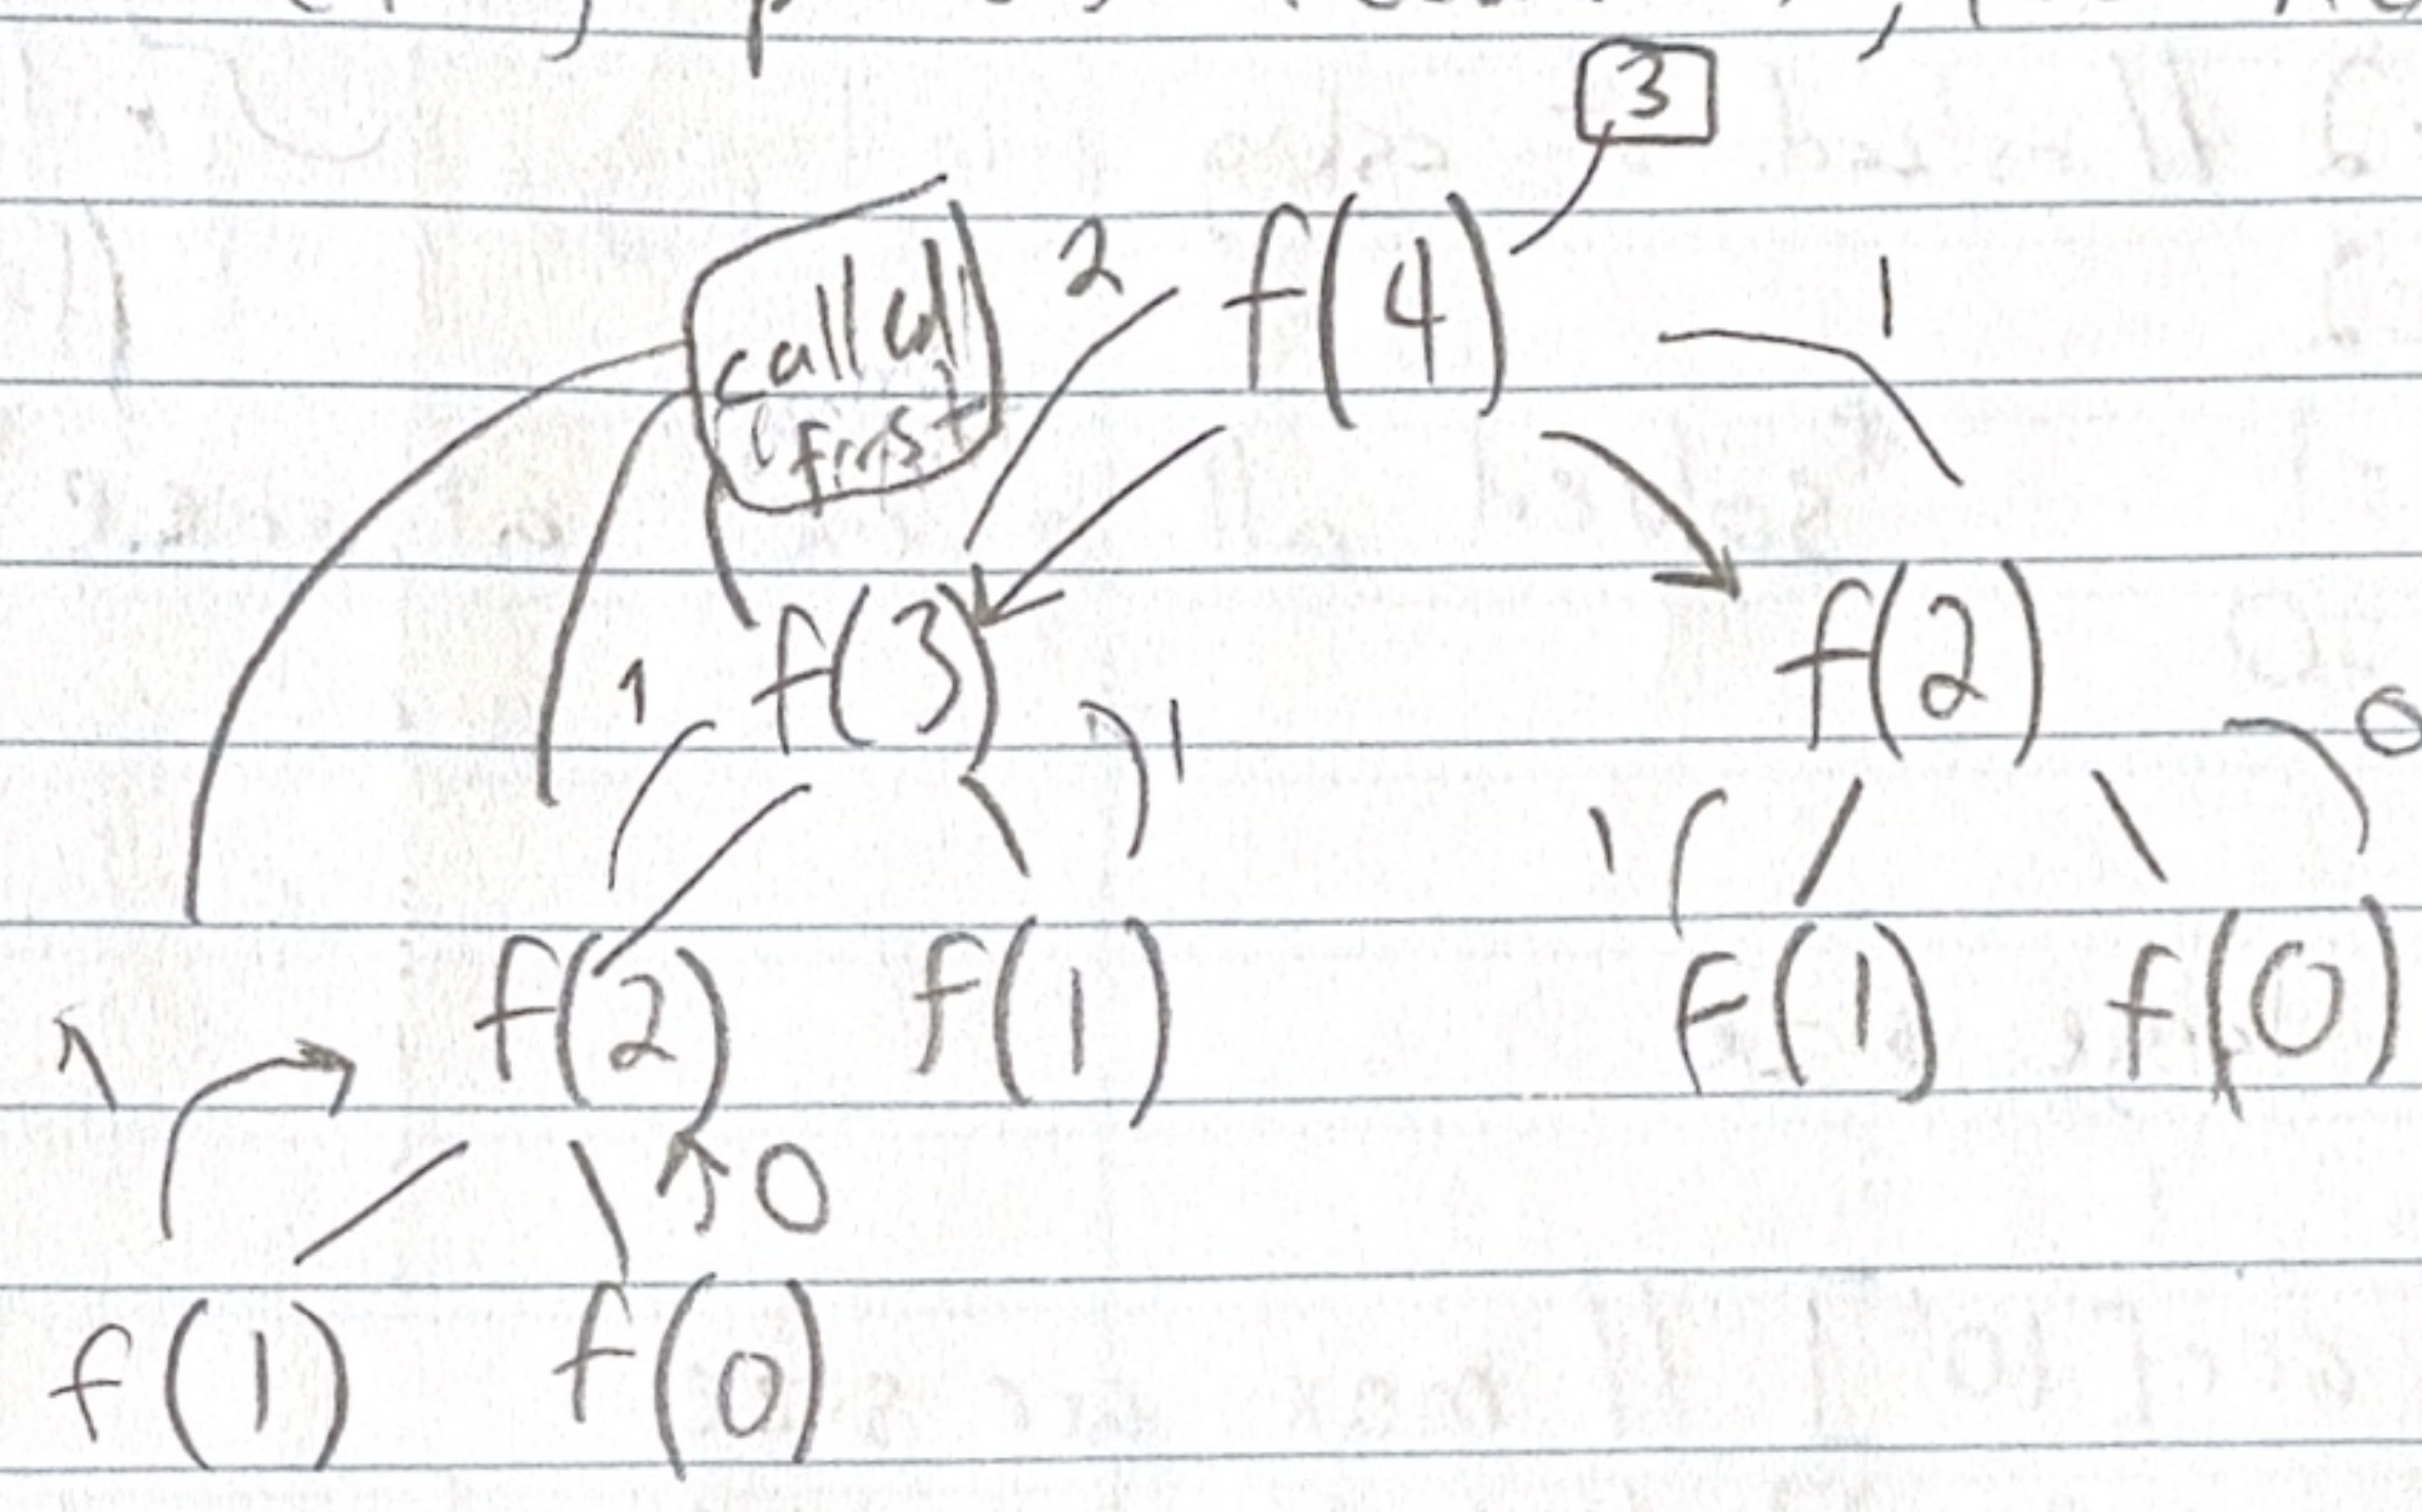 3
called
first
2 f(4) 1
1 f(3) 1 f(2) 0
1 1
f(2) f(1) f(1) f(0)
0
f(1) f(0)